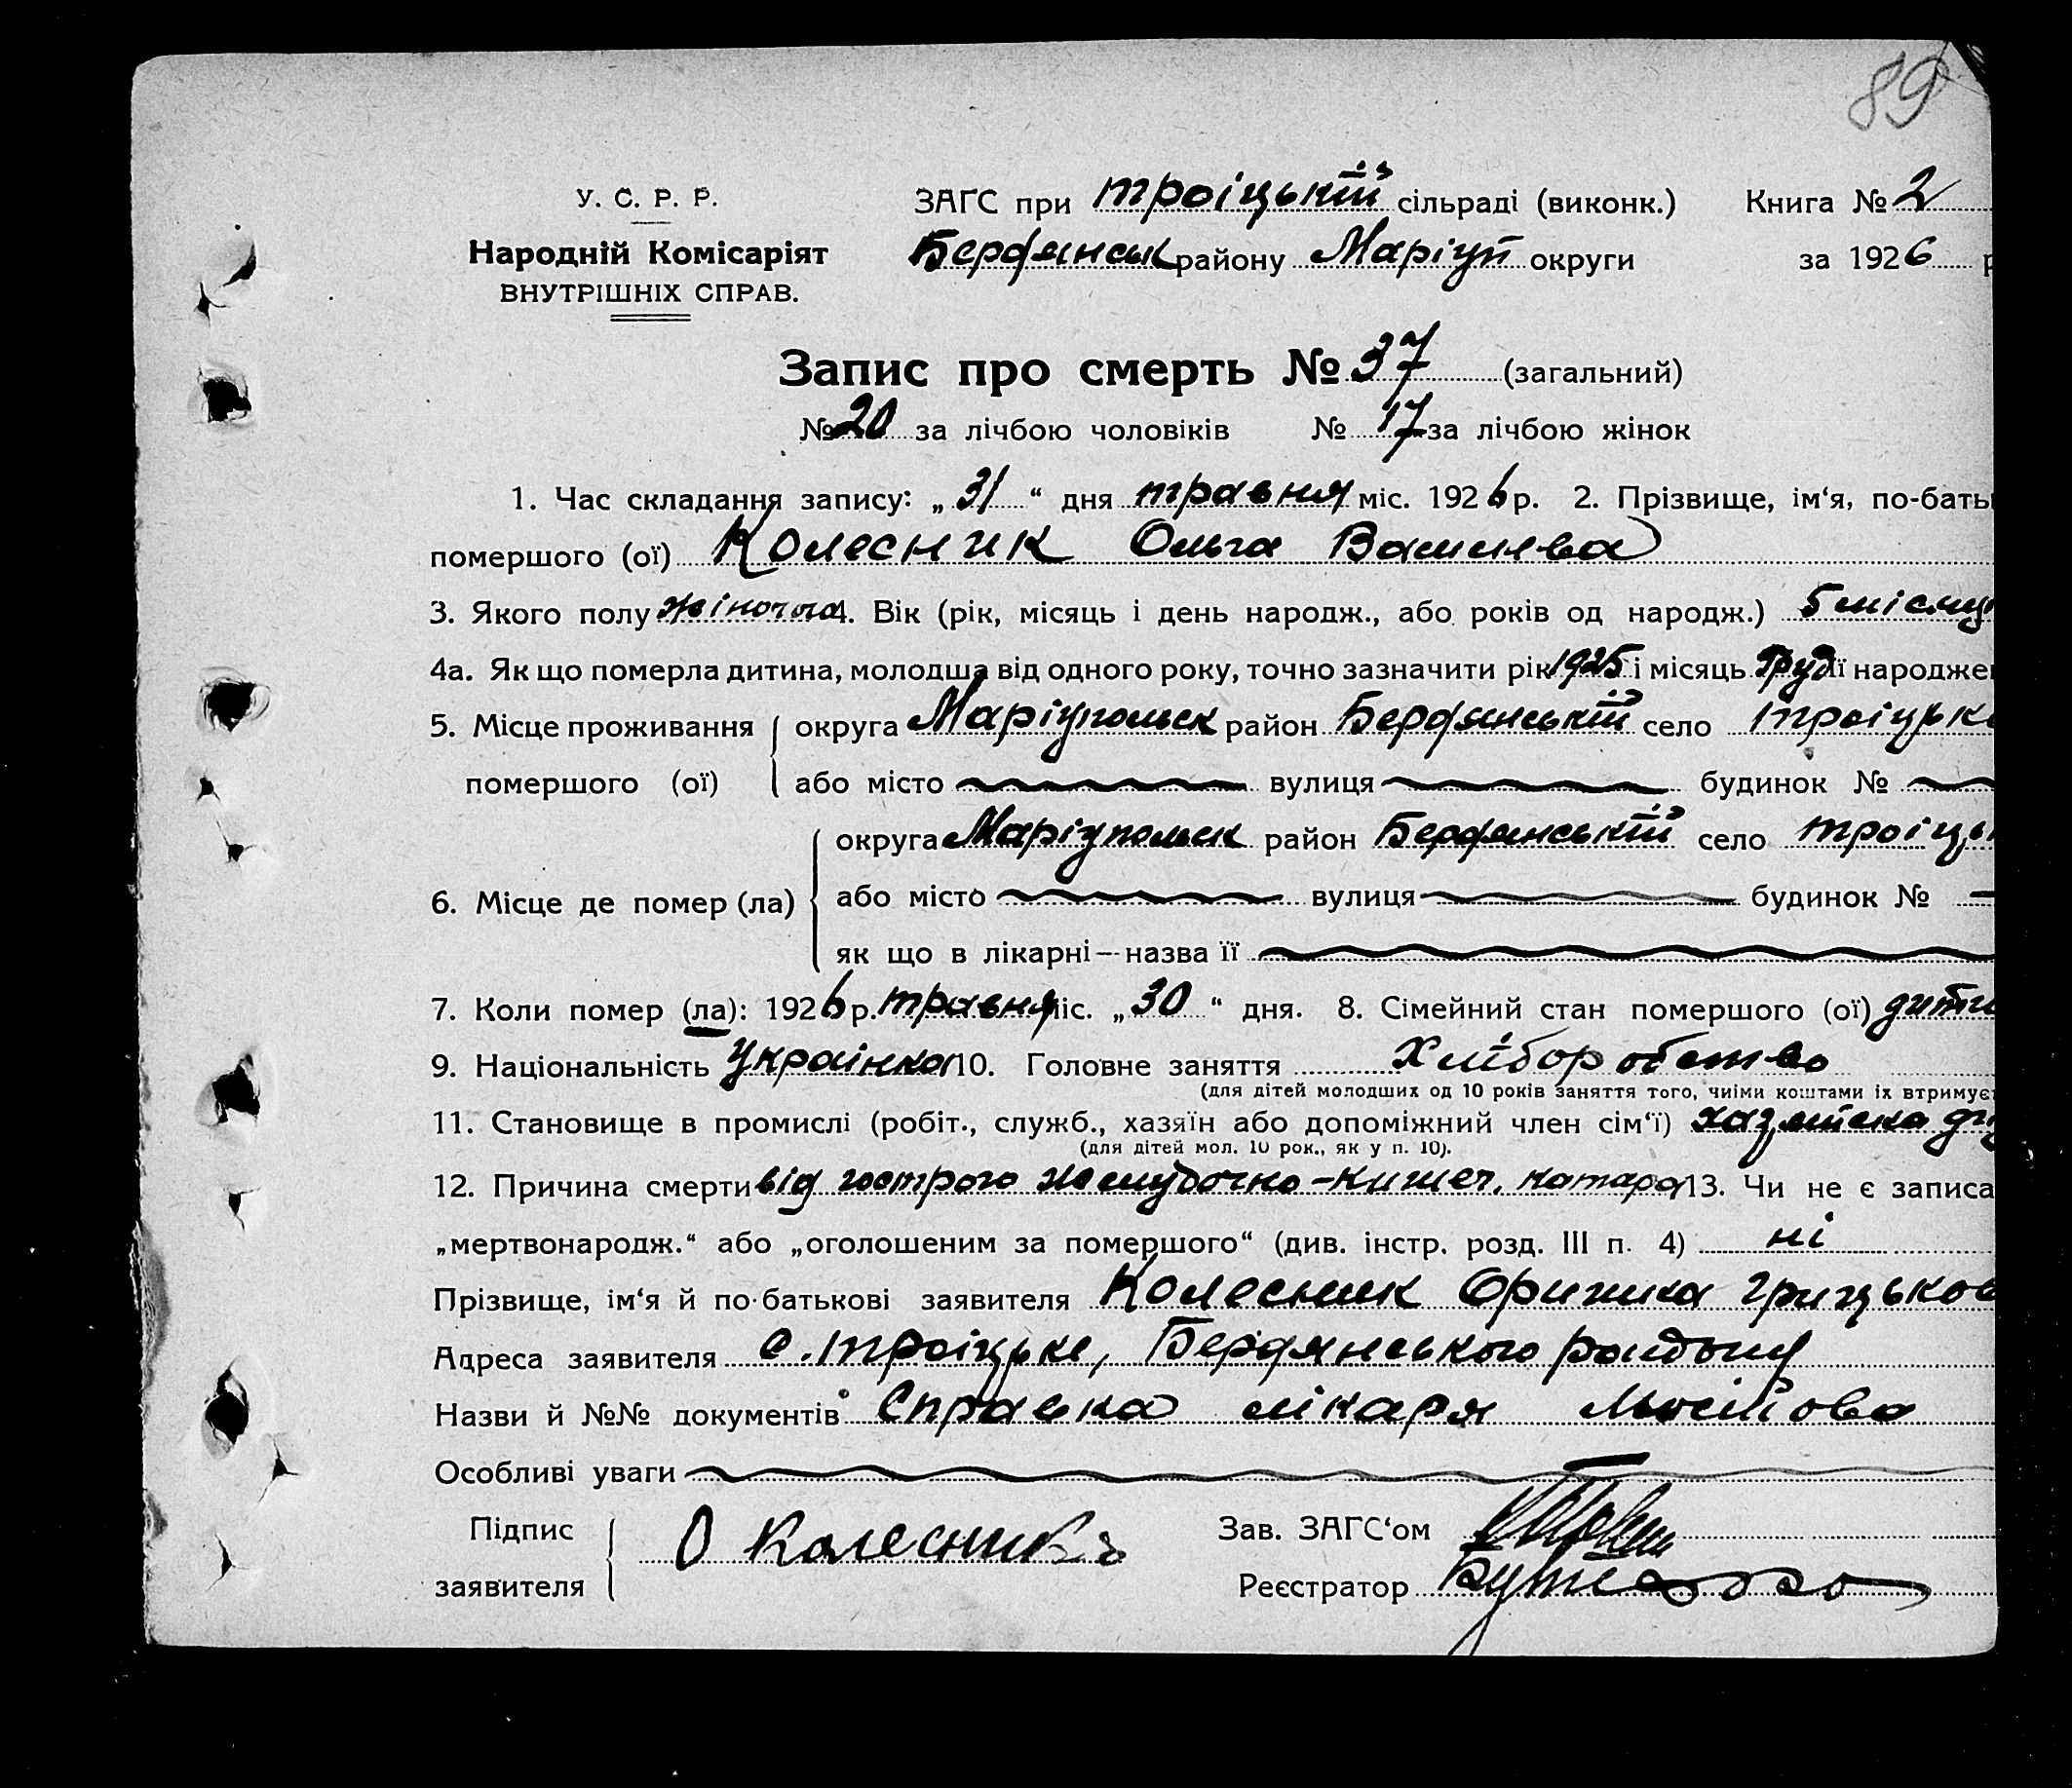 89
У. С. Р. Р.
Народній Комісаріят
ВНУТРІШНІХ СПРАВ.
ЗАГС при троіцькій сільраді (виконк.) Книга № 2
Бердянськ району Маріуп округи за 1926 р
Запис про смерть № 37 (загальний)
№ 20 за лічбою чоловіків № 17 за лічбою жінок
1. Час складання запису: „31“ дня травня міс. 1926 р. 2. Прізвище, ім‘я, по-бать
помершого (ої) Колесник Ольга Васильева
3. Якого полу жіночого 4. Вік (рік, місяць і день народж., або років од народж.) 5 місяц
4а. Як що померла дитина, молодша від одного року, точно зазначити рік 1925 і місяць Груд її народже
5. Місце проживання округа Маріупольск район Бердянській село троіцьк
помершого (ої) або місто вулиця будинок №
округа Маріупольск район Бердянській село троіць
6. Місце де помер (ла) або місто вулиця будинок №
як що в лікарні—назва її
7. Коли помер (ла): 1926 р. травня міс. „30“ дня. 8. Сімейний стан помершого (ої) дити
9. Національність Украінка 10. Головне заняття Хлібор обство
(для дітей молодших од 10 років заняття того, чиїми коштами їх втримує
11. Становище в промислі (робіт., служб., хазяїн або допоміжний член сім‘ї) хазяйска
(для дітей мол. 10 рок., як у п. 10).
12. Причина смерти від гострого желудочно-кишеч. катара 13. Чи не є записа
„мертвонародж.“ або „оголошеним за помершого“ (див. інстр. розд. III п. 4) ні
Прізвище, ім‘я й по-батькові заявителя Колесник Оришка грицьков
Адреса заявителя с. троіцьке, Бердянського району
Назви й №№ документів Справка лікаря
Особливі уваги
Підпис О Колесник Зав. ЗАГС‘ом
заявителя Реєстратор